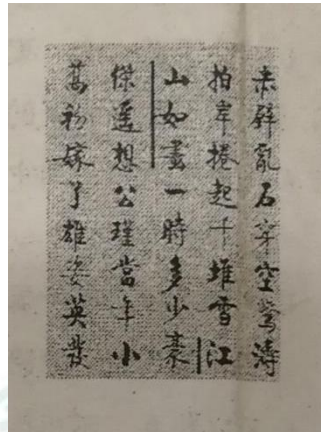 赤壁亂石穿空驚濤
拍岸捲起千堆雪江
山如畫一時多少豪
傑遥想公瑾當年小
喬初嫁了雄姿英發